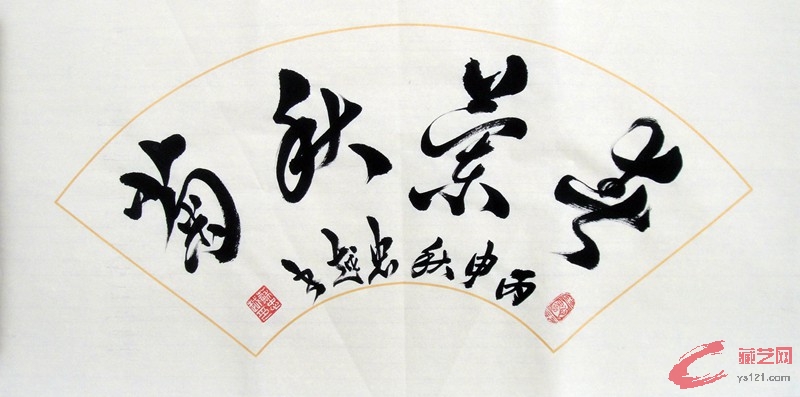 春蘭秋菊
丙申秋忠越书
藏艺网
ys121.com